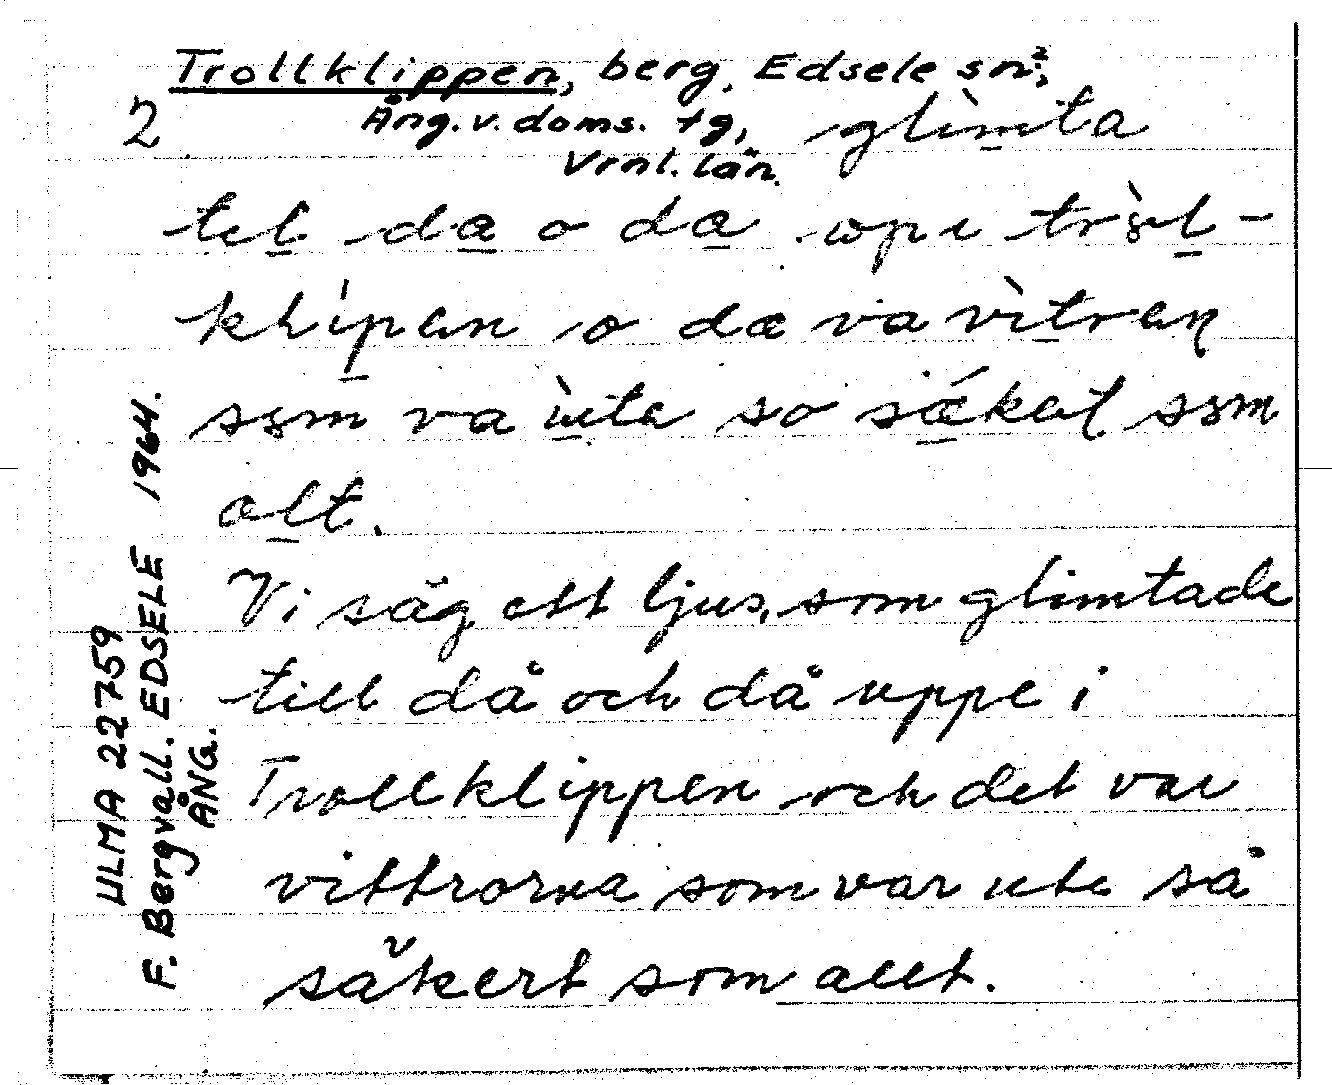 Trollklippen, berg, Edsele sn²;
2 Ång. v. doms. tg, glìm̲ta
Vrnl. län.
tel̲ da̲ o da̲ opı trȯ̀l̲-
klı̀p̲an o dæ va vìt̲raṇ
som va ùt̲e so sǽ̲kaṭ som
al̲t.
Vi såg ett ljus, som glimtade
till då och då uppe i
Trollklippen och det var
vittrorna som var ute så
säkert som allt.
ULMA 22759
F. Bergvall. EDSELE 1964.
ÅNG.